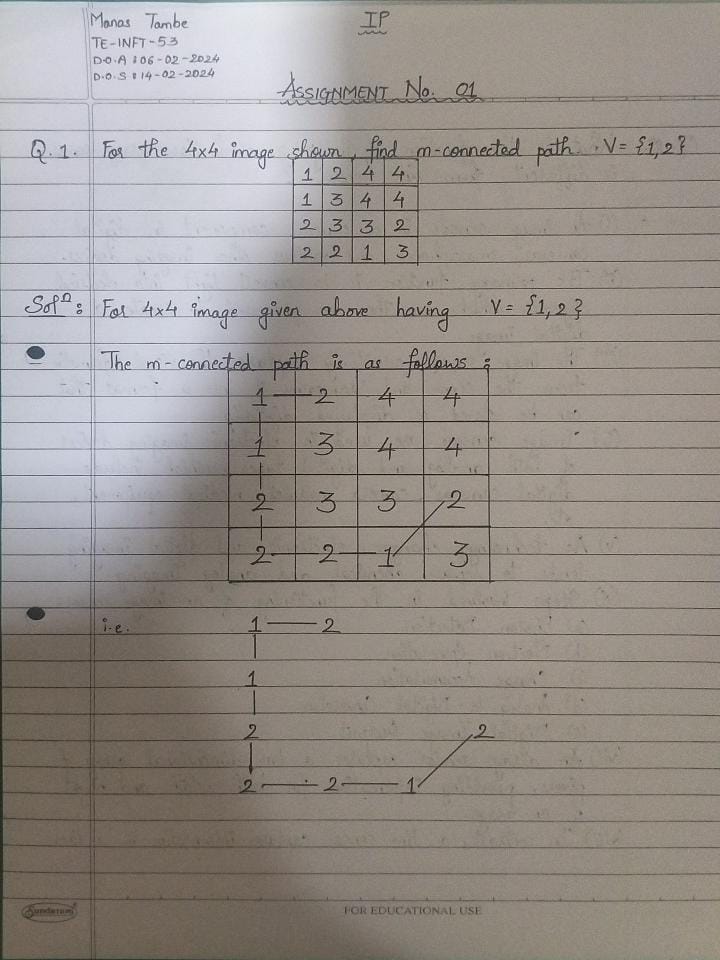 Manas Tambe
IP
TE-INFT-53
D.O.A : 06-02-2024
D.O.S : 14-02-2024
ASSIGNMENT No. 01
Q.1. For the 4x4 image shown, find m-connected path. V= {1,2}
1 2 4 4
1 3 4 4
2 3 3 2
2 2 1 3
Solⁿ: For 4x4 image given above having V= {1,2}
The m-connected path is as follows:
1 2 4 4
1 3 4 4
2 3 3 2
2 2 1 3
i.e. 1 2
1
2 2
2 2 1
Sundaram
FOR EDUCATIONAL USE